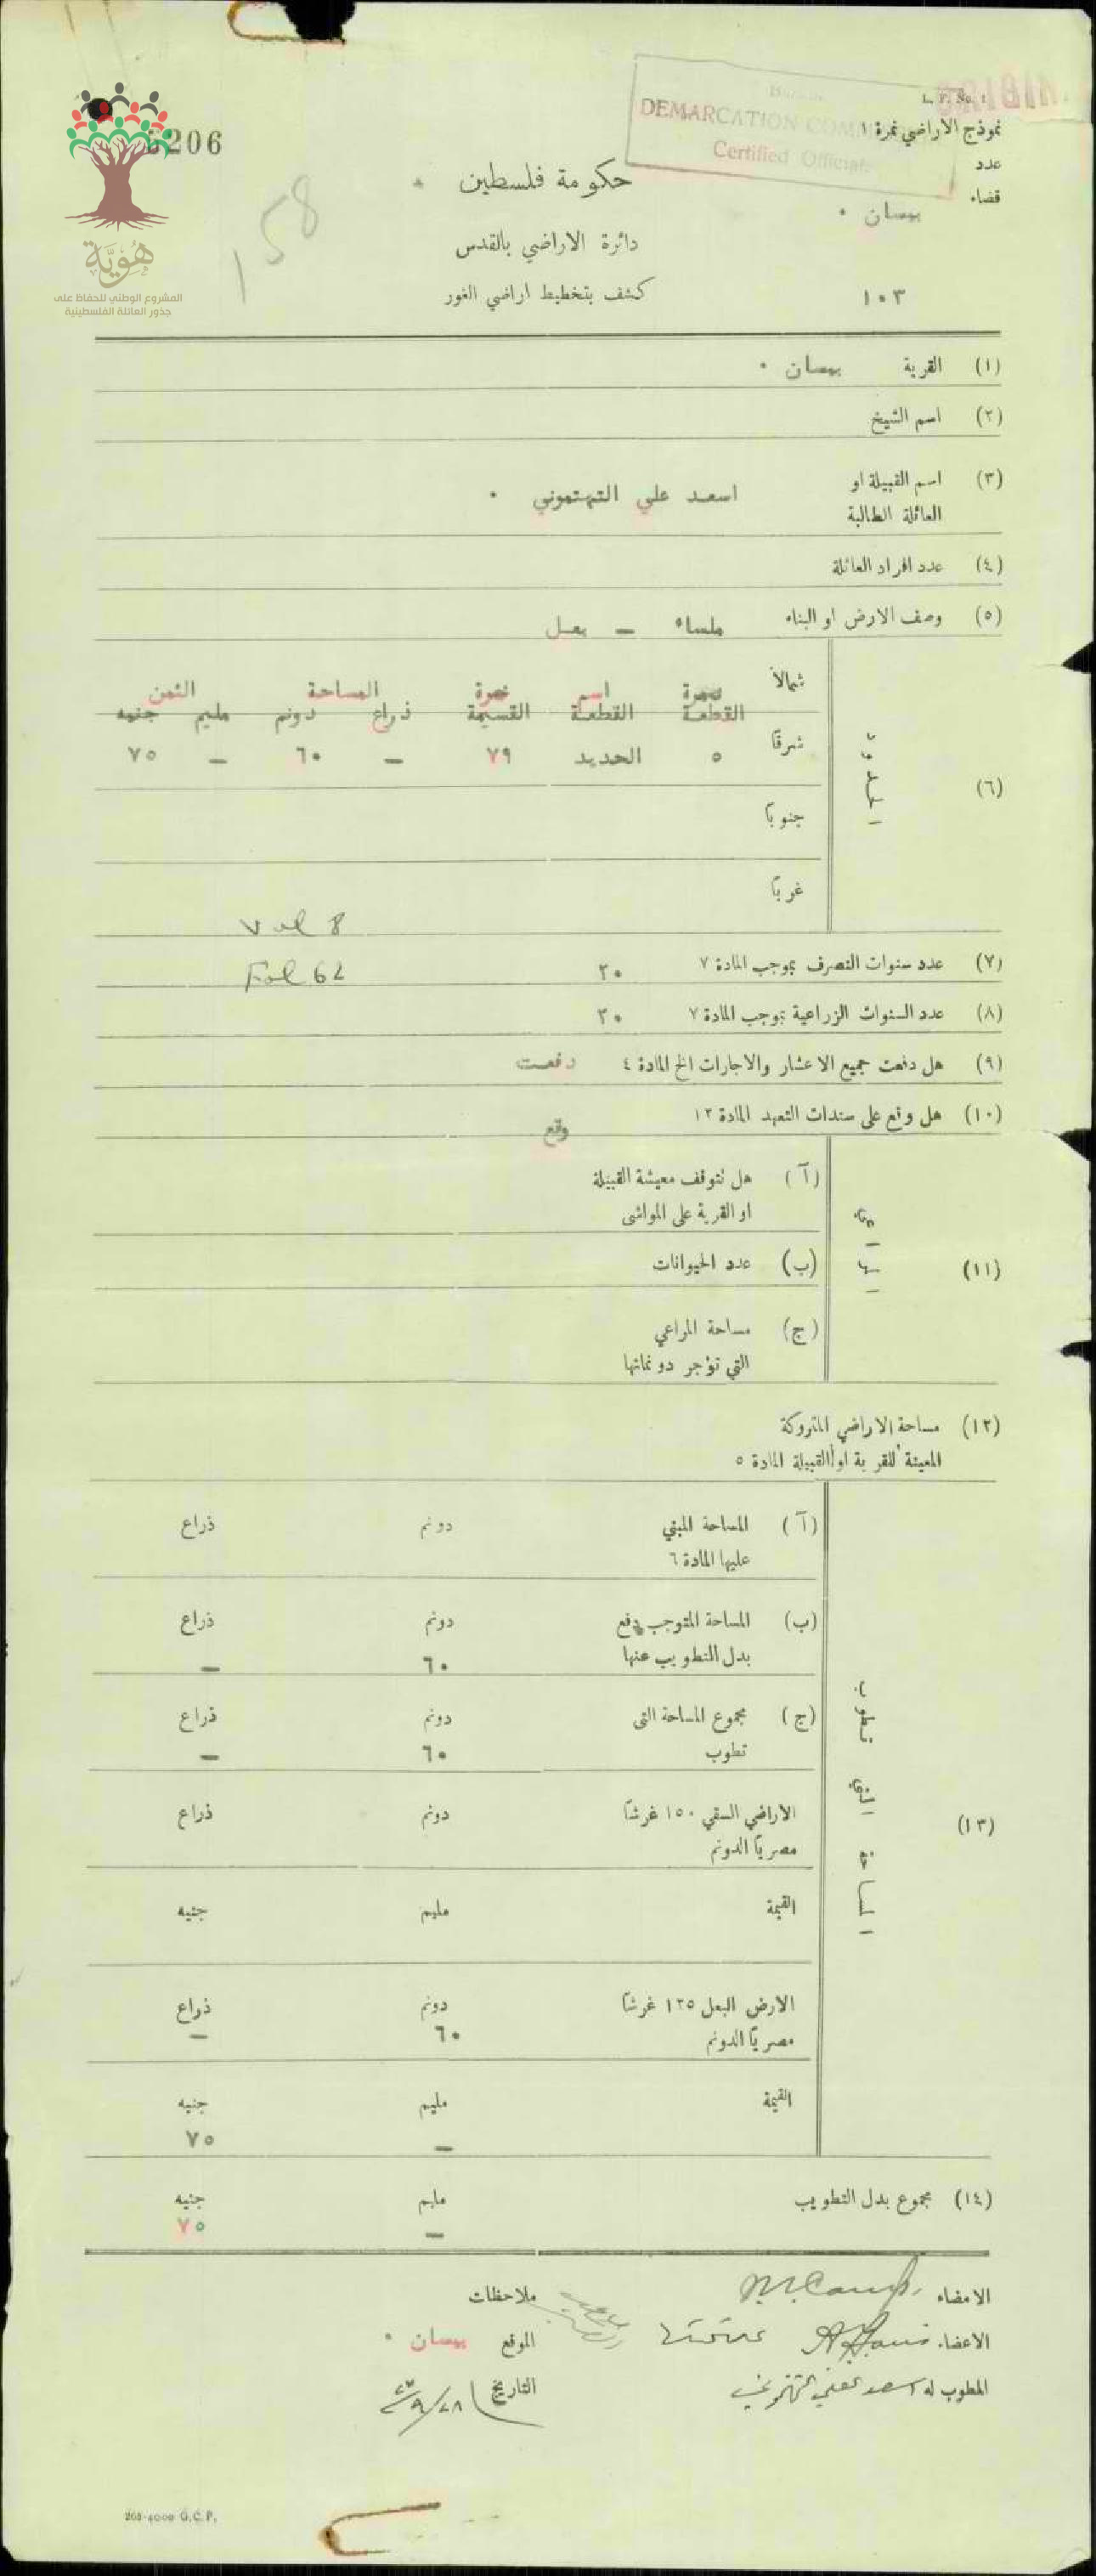 L. F. No. 1
نموذج الاراضي نمرة ١
DEMARCATION
Certified Officials
عدد
قضاء
بيسان ٠
206
158
هُوِيَّة
المشروع الوطني للحفاظ على
جذور العائلة الفلسطينية
حكومة فلسطين
دائرة الاراضي بالقدس
كشف بتخطيط اراضي الغور
١٠٣
(١) القرية بيسان ٠
(٢) اسم الشيخ
(٣) اسم القبيلة او
العائلة الطالبة
اسعد علي التهتموني ٠
(٤) عدد افراد العائلة
(٥) وصف الارض او البناء ملساء — بعل
(٦) الحدود
شمالاً
نمرة اسم نمرة المساحة الثمن
القطعة القطعة القسيمة ذراع دونم مليم جنيه
شرقاً
٥ الحديد ٧٩ — ٦٠ — ٧٥
جنوباً
غرباً
Vol 8
(٧) عدد سنوات التصرف بموجب المادة ٧ ٢٠
Fol 62
(٨) عدد السنوات الزراعية بموجب المادة ٧ ٢٠
(٩) هل دفعت جميع الاعشار والاجارات الخ المادة ٤ دفعت
(١٠) هل وقع على سندات التعهد المادة ١٢ وقع
(١١)
(آ) هل تتوقف معيشة القبيلة
او القرية على المواشى
(ب) عدد الحيوانات
(ج) مساحة المراعي
التي تؤجر دونماتها
(١٢) مساحة الاراضي المتروكة
المعينة للقرية او القبيلة المادة ٥
(١٣) المساحة التي تطوب
(آ) المساحة المبني دونم ذراع
عليها المادة ٦
(ب) المساحة المتوجب دفع دونم ذراع
بدل التطويب عنها ٦٠ —
(ج) مجموع المساحة التى دونم ذراع
تطوب ٦٠ —
الاراضي السقي ١٥٠ غرشاً دونم ذراع
مصرياً الدونم
القيمة مليم جنيه
الارض البعل ١٢٥ غرشاً دونم ذراع
مصرياً الدونم ٦٠ —
القيمة مليم جنيه
— ٧٥
(١٤) مجموع بدل التطويب مليم جنيه
— ٧٥
الامضاء
ملاحظات
الاعضاء
الموقع بيسان ٠
المطوب له
التاريخ
268-4000 G.C.P.